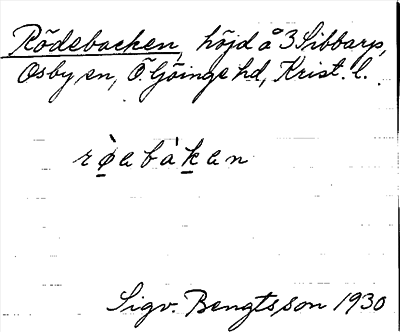 Rödebacken, höjd å 3 Sibbarp,
Osby sn, Ö. Göinge hd, Krist. l.
rø̀ebàken
Sigv. Bengtsson 1930